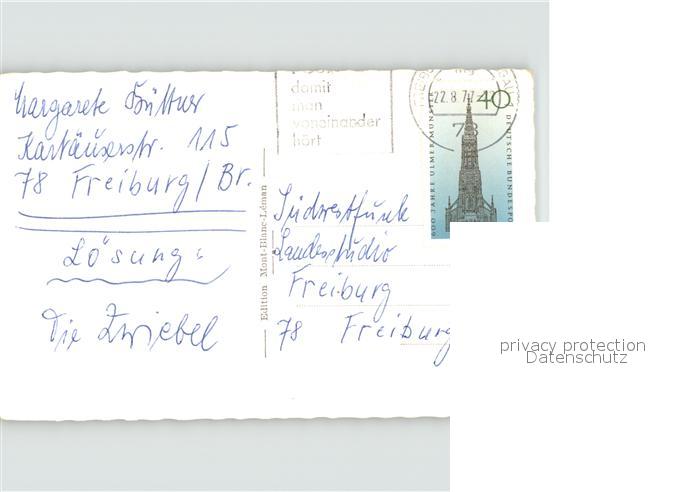 Margarete Büttner
Kartäuserstr. 115
78 Freiburg/Br.
Lösung:
Die Zwiebel
Edition Mont-Blanc-Léman
damit
man
voneinander
hört
22.8.77
78
40
600 JAHRE ULMER MÜNSTER
DEUTSCHE BUNDESPO
Südwestfunk
Landesstudio
Freiburg
78 Freiburg
privacy protection
Datenschutz